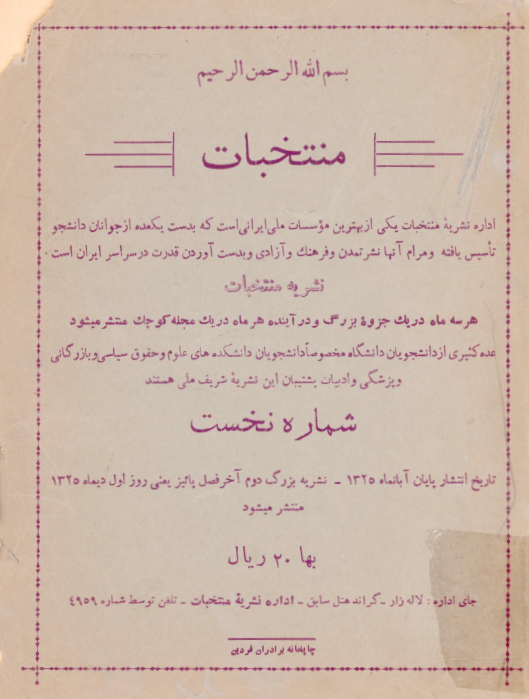 بسم الله الرحمن الرحیم
منتخبات
اداره نشریهٔ منتخبات یکی از بهترین مؤسسات ملی ایرانی است که بدست یکعده از جوانان دانشجو
تأسیس یافته ومرام آنها نشر تمدن وفرهنك وآزادی وبدست آوردن قدرت در سراسر ایران است
نشریه منتخبات
هر سه ماه در یك جزوهٔ بزرگ و در آینده هر ماه در یك مجله کوچك منتشر میشود
عده کثیری از دانشجویان دانشگاه مخصوصاً دانشجویان دانشکده های علوم وحقوق سیاسی وبازرگانی
وپزشکی وادبیات پشتیبان این نشریهٔ شریف ملی هستند
شماره نخست
تاریخ انتشار پایان آبانماه ۱۳۲۵ ـ نشریه بزرگ دوم آخر فصل پائیز یعنی روز اول دیماه ۱۳۲۵
منتشر میشود
بها ۲۰ ریال
جای اداره : لاله زار ـ گراند هتل سابق ـ اداره نشریهٔ منتخبات ـ تلفن توسط شماره ۴۹۵۹
چاپخانه برادران فردین